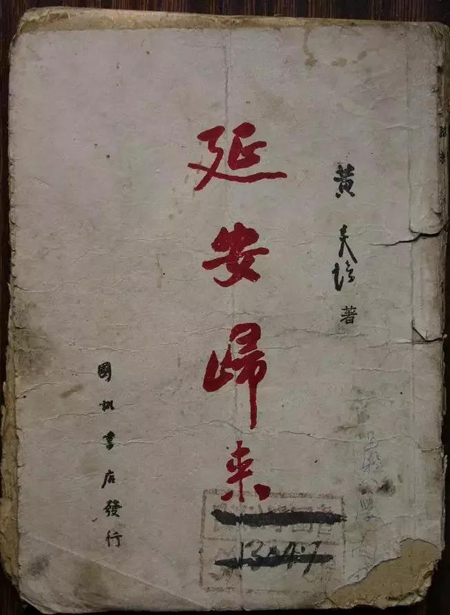 黃炎培
著
延安歸來
國訊書店發行
13047